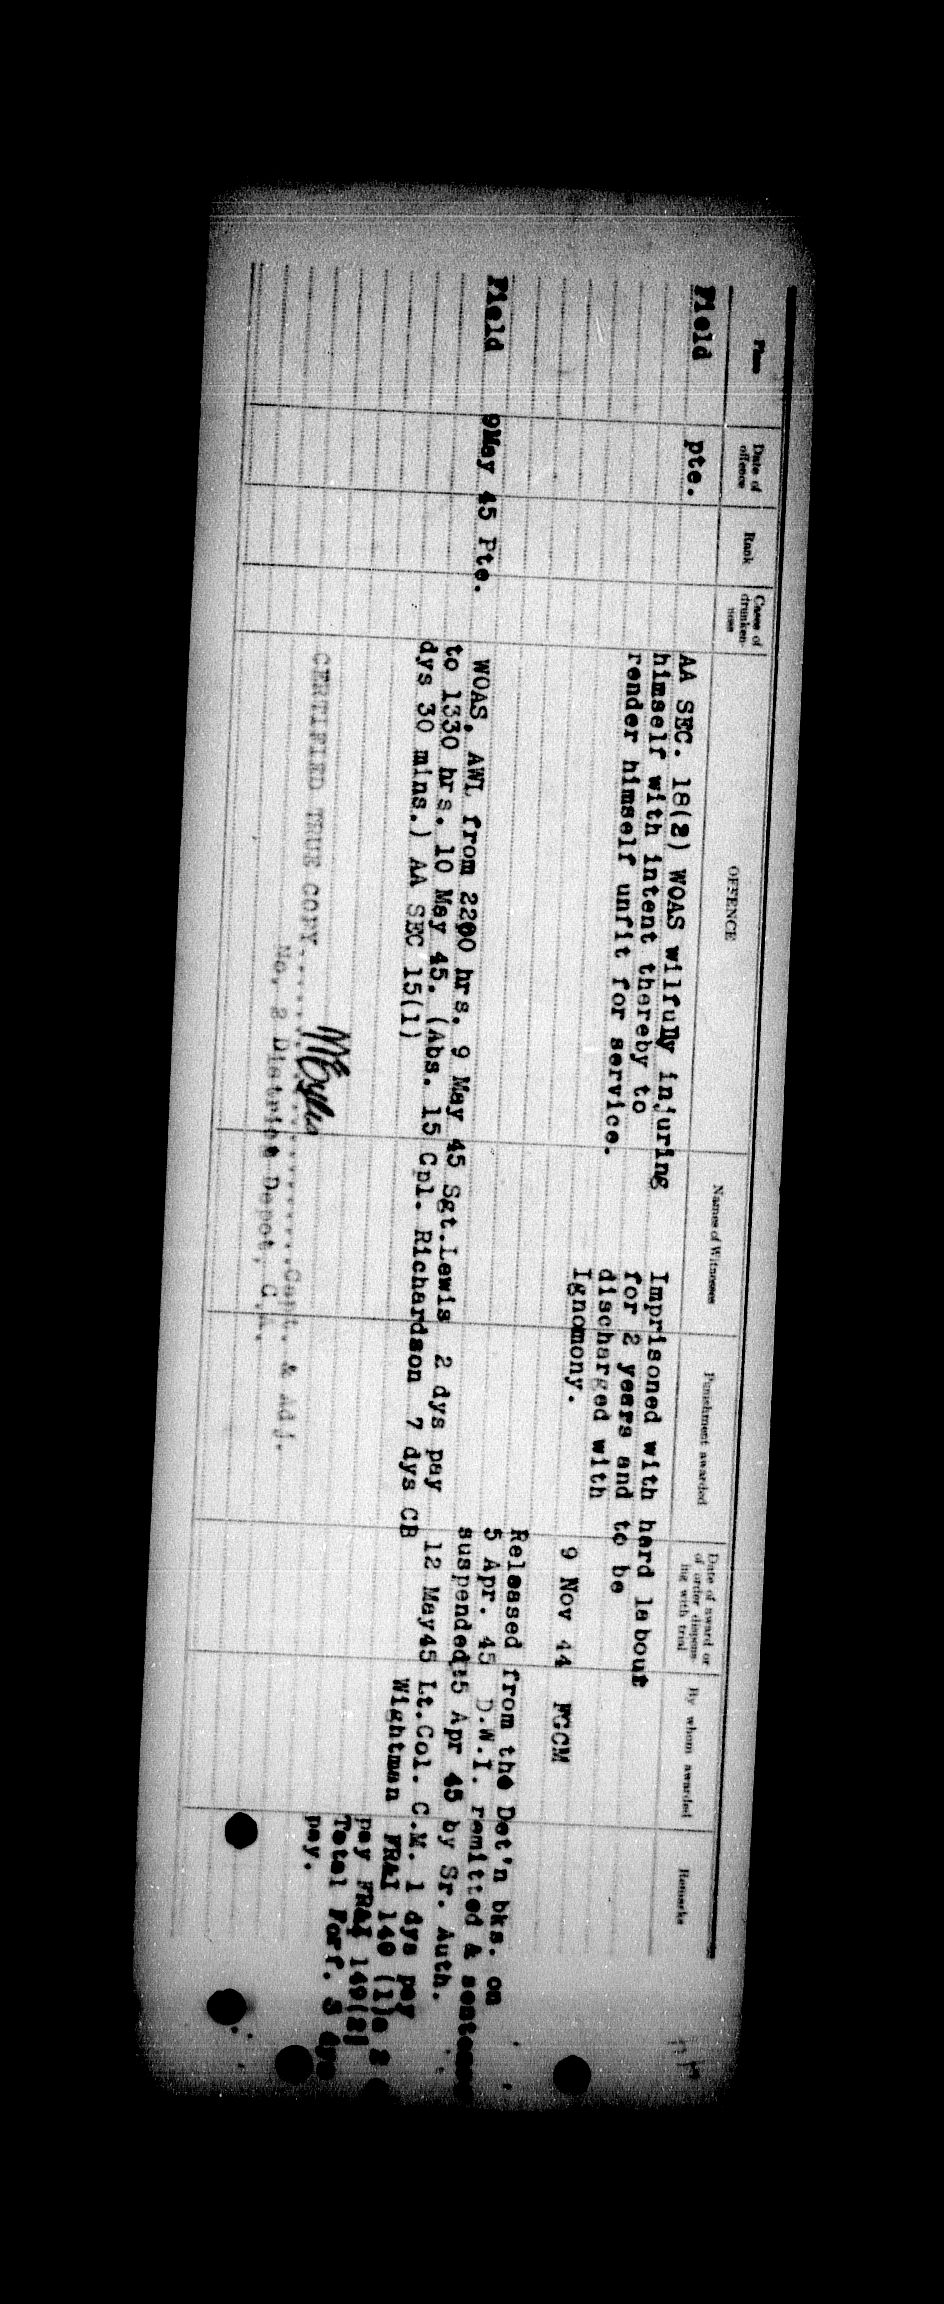 Place Date of offence Rank Cases of drunken-ness OFFENCE Names of Witnesses Punishment awarded Date of award or of order dispens-ing with trial By whom awarded Remarks
Field pte. AA SEC. 18(2) WOAS wilfully injuring
himself with intent thereby to
render himself unfit for service.
Imprisoned with hard labout
for 2 years and to be
discharged with
Ignomony.
9 Nov 44 FGCM
Released from the Det'n bks. on
5 Apr. 45 D.W.I. remitted & sentence
suspended 5 Apr 45 by Sr. Auth.
Field 9May 45 Pte. WOAS, AWL from 2200 hrs. 9 May 45 Sgt.Lewis 2 dys pay
to 1330 hrs. 10 May 45. (Abs. 15 Cpl. Richardson 7 dys CB
dys 30 mins.) AA SEC 15(1)
12 May45 Lt.Col. C.M. 1 dys pay
Wightman FR&I 140 (1)
pay FR&I 149(2)
Total Forf. 3 dys
pay.
CERTIFIED TRUE COPY
Capt. & Adj.
No. 2 District Depot, C.A.